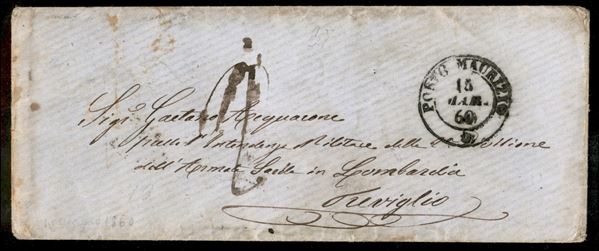 PORTO MAURIZIO
15
60
Sig.r Gaetano Acquarone
presso l'Intendenza Militare della
dell'Armata Sarda in Lombardia
Treviglio
1860